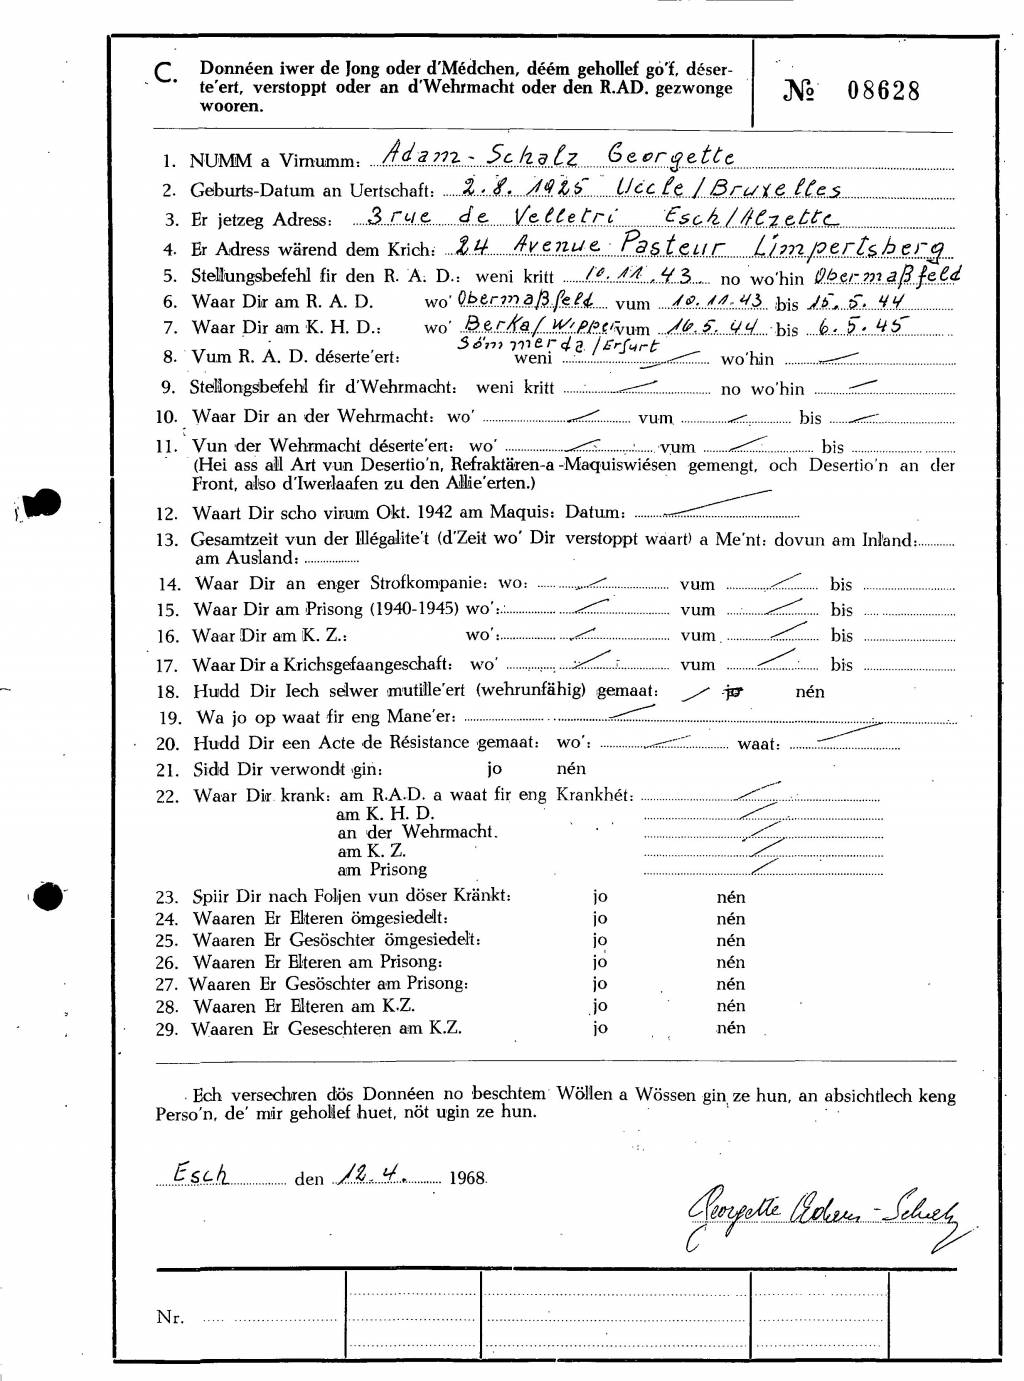 C. Donnéen iwer de Jong oder d'Médchen, déém gehollef go'f, déser-
te'ert, verstoppt oder an d'Wehrmacht oder den R.AD. gezwonge
wooren.
No 08628
1. NUMM a Virnumm: Adam-Schalz Georgette
2. Geburts-Datum an Uertschaft: 2.8.1925 Uccle/Bruxelles
3. Er jetzeg Adress: 3 rue de Velletri Esch/Alzette
4. Er Adress wärend dem Krich: 24 Avenue Pasteur Limpertsberg
5. Stellungsbefehl fir den R. A. D.: weni kritt 10.11.43 no wo'hin Obermaßfeld
6. Waar Dir am R. A. D. wo' Obermaßfeld vum 10.11.43 bis 15.5.44
7. Waar Dir am K. H. D.: wo' Berka/Wipper vum 16.5.44 bis 6.5.45
Sömmerda/Erfurt
8. Vum R. A. D. déserte'ert: weni wo'hin
9. Stellongsbefehl fir d'Wehrmacht: weni kritt no wo'hin
10. Waar Dir an der Wehrmacht: wo' vum bis
11. Vun der Wehrmacht déserte'ert: wo' vum bis
(Hei ass all Art vun Desertio'n, Refraktären-a-Maquiswiésen gemengt, och Desertio'n an der
Front, also d'Iwerlaafen zu den Allie'erten.)
12. Waart Dir scho virum Okt. 1942 am Maquis: Datum:
13. Gesamtzeit vun der Illégalite't (d'Zeit wo' Dir verstoppt waart) a Me'nt: dovun am Inland:
am Ausland:
14. Waar Dir an enger Strofkompanie: wo: vum bis
15. Waar Dir am Prisong (1940-1945) wo': vum bis
16. Waar Dir am K. Z.: wo': vum bis
17. Waar Dir a Krichsgefaangeschaft: wo' vum bis
18. Hudd Dir Iech selwer mutille'ert (wehrunfähig) gemaat: jo nén
19. Wa jo op waat fir eng Mane'er:
20. Hudd Dir een Acte de Résistance gemaat: wo': waat:
21. Sidd Dir verwondt gin: jo nén
22. Waar Dir krank: am R.A.D. a waat fir eng Krankhét:
am K. H. D.
an der Wehrmacht.
am K. Z.
am Prisong
23. Spiir Dir nach Foljen vun döser Kränkt: jo nén
24. Waaren Er Elteren ömgesiedelt: jo nén
25. Waaren Er Gesöschter ömgesiedelt: jo nén
26. Waaren Er Elteren am Prisong: jo nén
27. Waaren Er Gesöschter am Prisong: jo nén
28. Waaren Er Elteren am K.Z. jo nén
29. Waaren Er Geseschteren am K.Z. jo nén
Ech versechren dös Donnéen no beschtem Wöllen a Wössen gin ze hun, an absichtlech keng
Perso'n, de' mir gehollef huet, nöt ugin ze hun.
Esch den 12.4. 1968
Georgette Adam-Schalz
Nr.